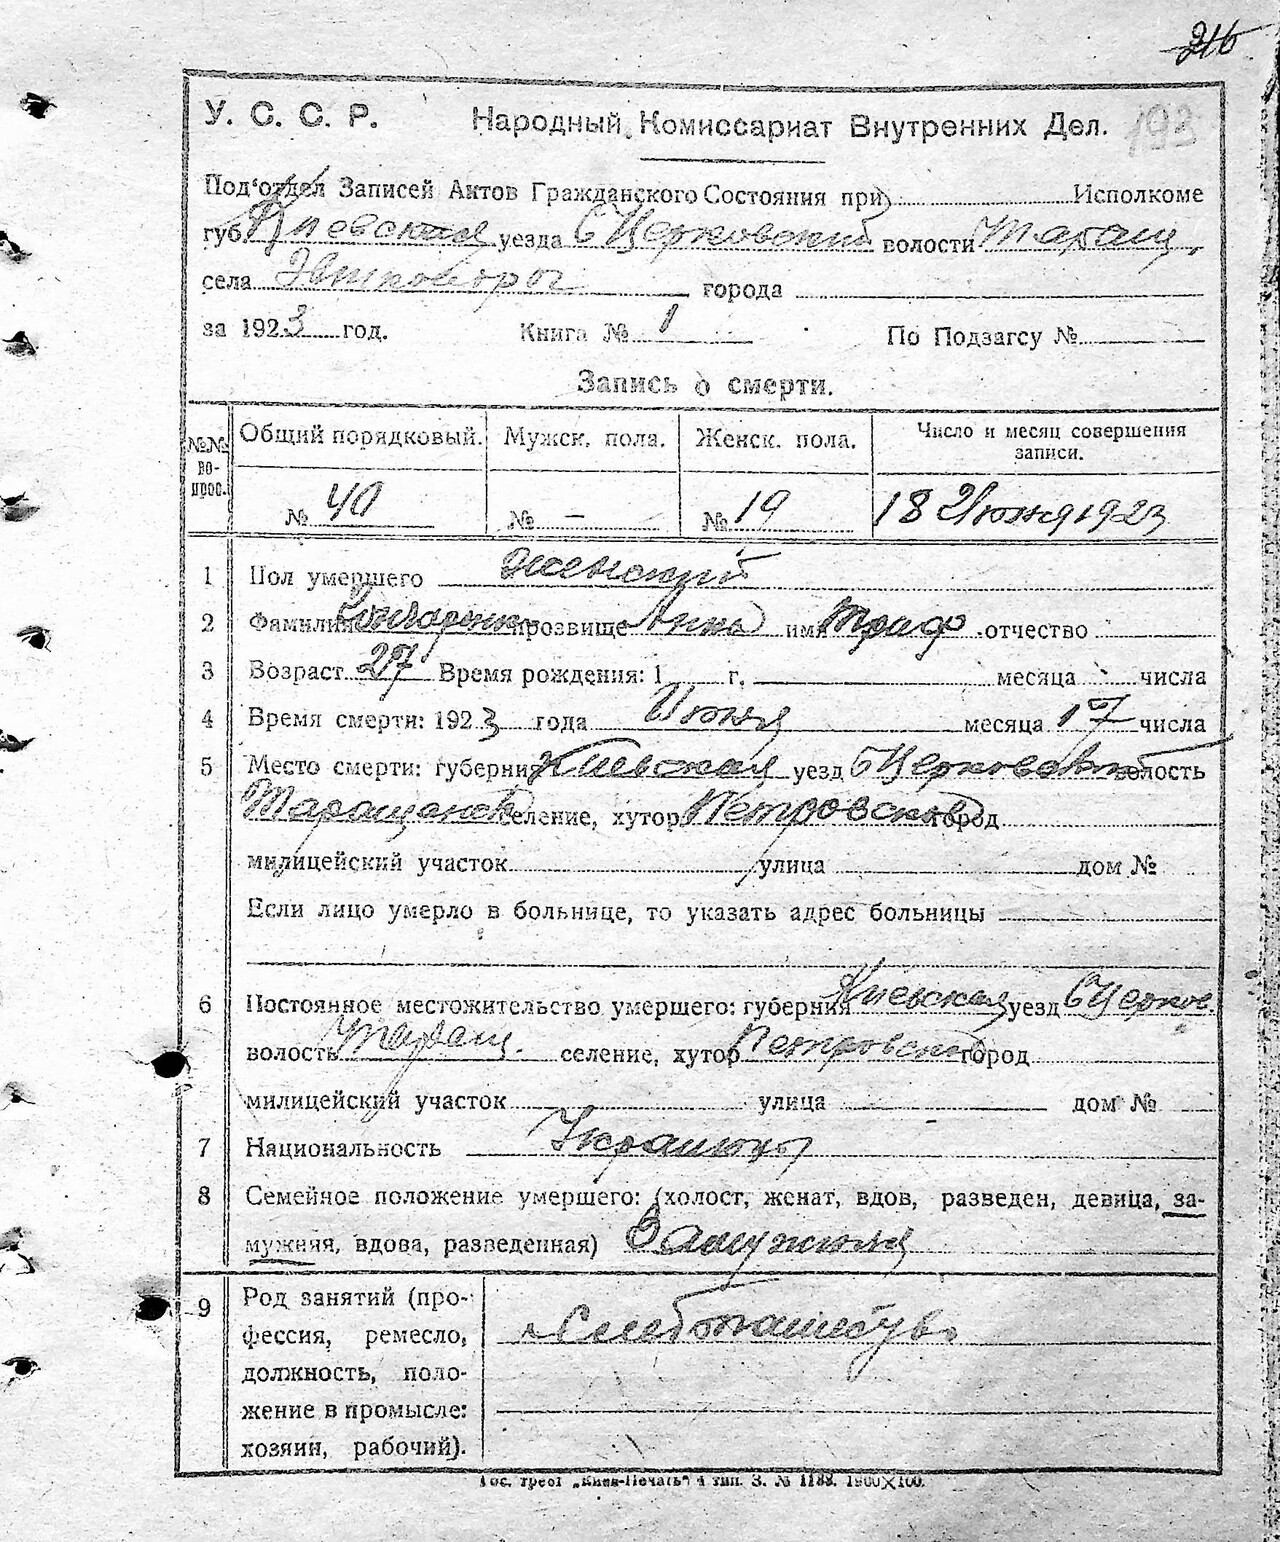 216
У. С. С. Р. Народный Комиссариат Внутренних Дел. 193
Под'отдел Записей Актов Гражданского Состояния при Исполкоме
губ. Киевская уезда БЦерковский волости Таращ.
села города
за 1923 год. Книга № 1 По Подзагсу №
Запись о смерти.
№№ вопрос. Общий порядковый. Мужск. пола. Женск. пола. Число и месяц совершения записи.
№ 40 № — № 19 18 Июня 1923
1 Пол умершего Женский
2 Фамилия Гончаренко прозвище Анна имя Троф отчество
3 Возраст 27 Время рождения: 1 г. месяца числа
4 Время смерти: 1923 года Июня месяца 17 числа
5 Место смерти: губерния Киевская уезд БЦерковский волость
Таращанск селение, хутор Петровский город
милицейский участок улица дом №
Если лицо умерло в больнице, то указать адрес больницы
6 Постоянное местожительство умершего: губерния Киевская уезд БЦерков.
волость Таращ. селение, хутор Петровский город
милицейский участок улица дом №
7 Национальность
8 Семейное положение умершего: (холост, женат, вдов, разведен, девица, за-
мужняя, вдова, разведенная) Замужняя
9 Род занятий (про-
фессия, ремесло,
должность, поло-
жение в промысле:
хозяин, рабочий).
Гос. трест „Киев-Печать" 4 тип. З. № 1188. 1900×100.